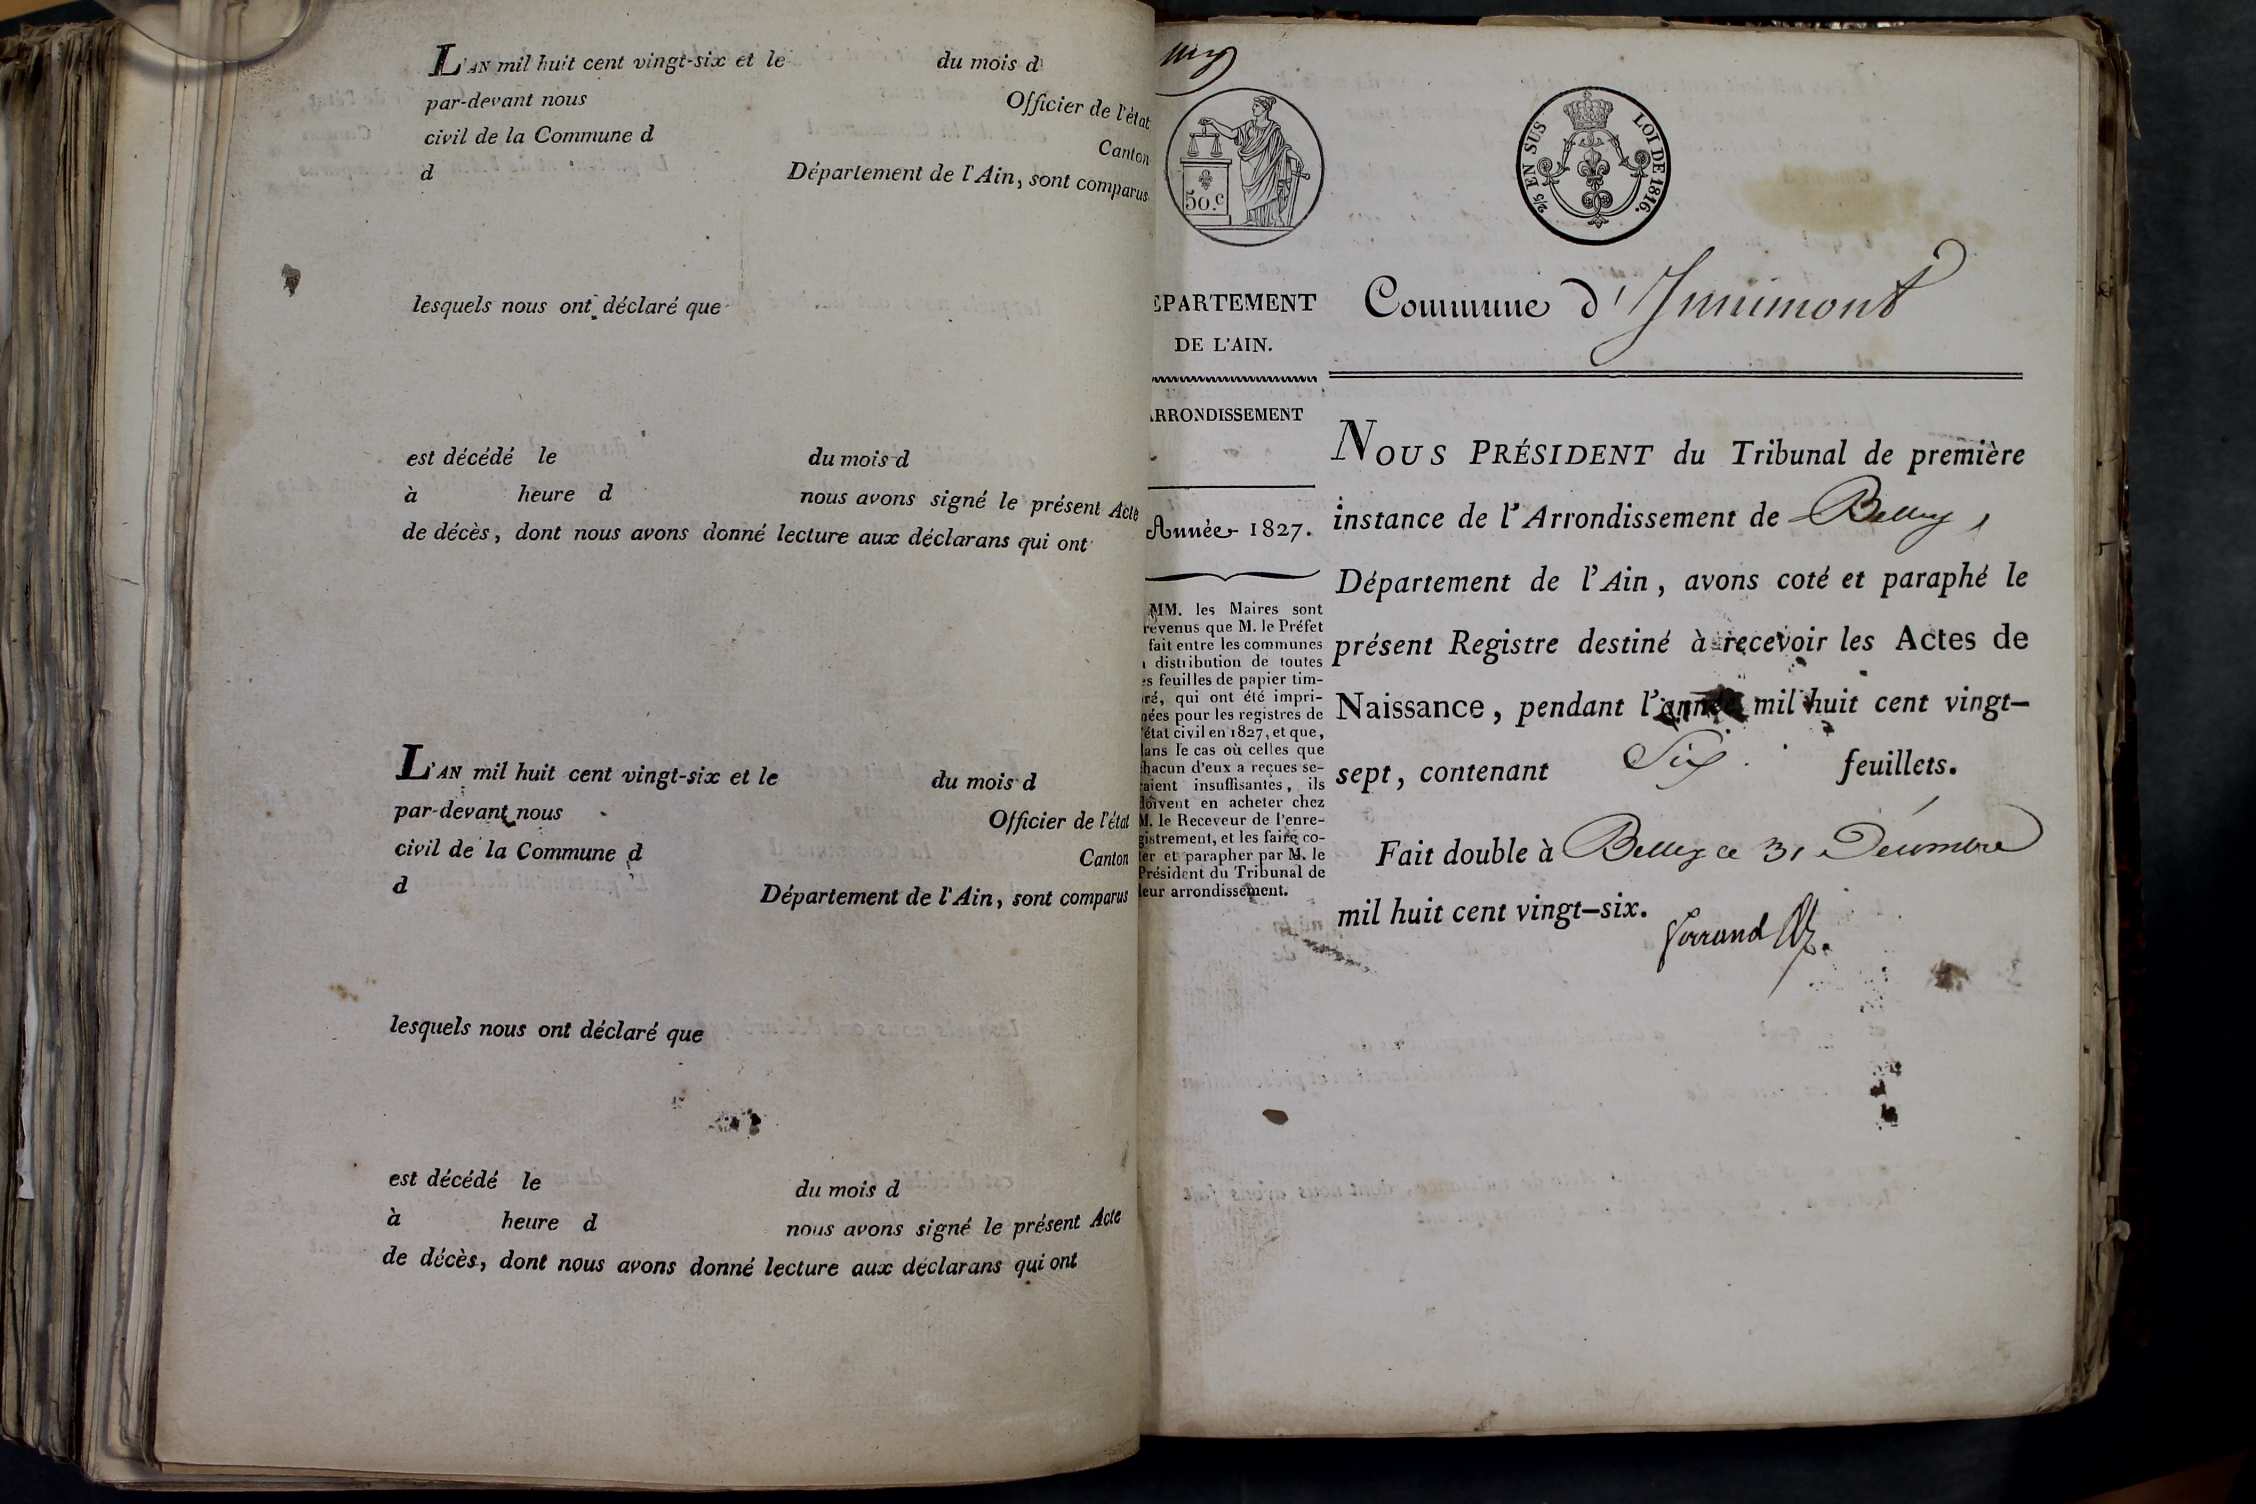 L'AN mil huit cent vingt-six et le du mois d
par-devant nous Officier de l'état
civil de la Commune d Canton
d Département de l'Ain, sont comparus
lesquels nous ont déclaré que
est décédé le du mois d
à heure d nous avons signé le présent Acte
de décès, dont nous avons donné lecture aux déclarans qui ont
L'AN mil huit cent vingt-six et le du mois d
par-devant nous Officier de l'état
civil de la Commune d Canton
d Département de l'Ain, sont comparus
lesquels nous ont déclaré que
est décédé le du mois d
à heure d nous avons signé le présent Acte
de décès, dont nous avons donné lecture aux déclarans qui ont
50.c
2/5 EN SUS LOI DE 1816.
EPARTEMENT
DE L'AIN.
ARRONDISSEMENT
Année 1827.
MM. les Maires sont
révenus que M. le Préfet
fait entre les communes
distribution de toutes
es feuilles de papier tim-
ré, qui ont été impri-
nées pour les registres de
'état civil en 1827, et que,
lans le cas où celles que
hacun d'eux a reçues se-
raient insuffisantes, ils
doivent en acheter chez
M. le Receveur de l'enre-
gistrement, et les faire co-
ter et parapher par M. le
Président du Tribunal de
leur arrondissement.
Commune d'Innimont
NOUS PRÉSIDENT du Tribunal de première
instance de l'Arrondissement de Belley,
Département de l'Ain, avons coté et paraphé le
présent Registre destiné à recevoir les Actes de
Naissance, pendant l'année mil huit cent vingt-
sept, contenant Six feuillets.
Fait double à Belley ce 31 Décembre
mil huit cent vingt-six.